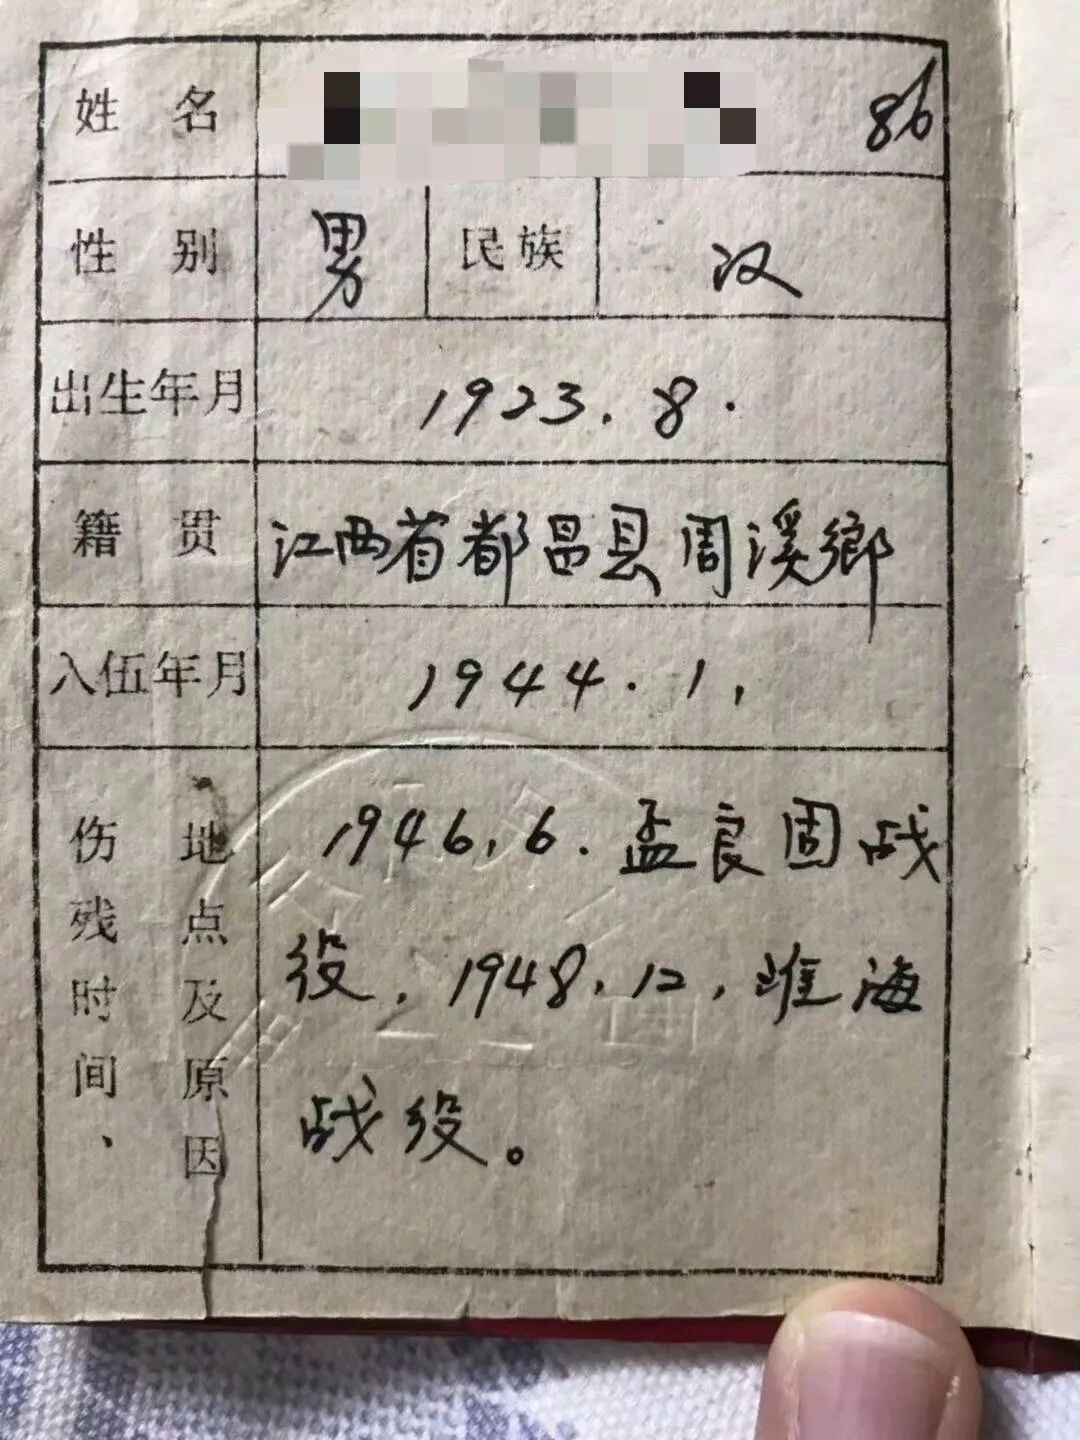 姓名 86
性别 男 民族 汉
出生年月 1923.8.
籍贯 江西省都昌县周溪鄉
入伍年月 1944.1.
伤残时间、地点及原因
1946.6.孟良固战
役,1948.12,淮海
战役。